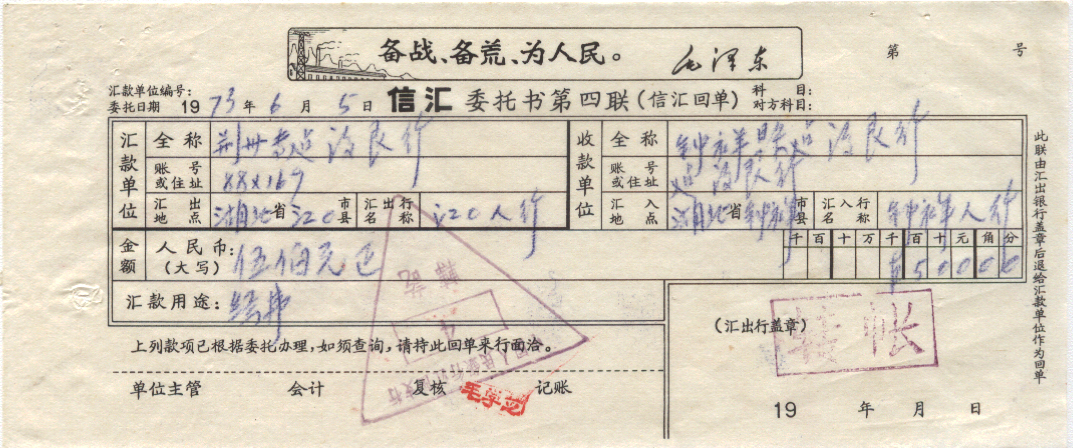 备战、备荒、为人民。 毛泽东
第 号
汇款单位编号:
委托日期 1973年6月5日 信汇 委托书第四联(信汇回单) 科目:
对方科目:
汇款单位 全称
账号或住址
汇出地点 湖北省江口市县 汇出行名称 江口人行
收款单位 全称
账号或住址
汇入地点 湖北省钟祥市县 汇入行名称 钟祥人行
金额 人民币:(大写) 伍佰元正
千百十万千百十元角分
¥50000
汇款用途: 经费
上列款项已根据委托办理,如须查询,请持此回单来行面洽。
(汇出行盖章)
转帐
单位主管 会计 复核 记账
19 年 月 日
此联由汇出银行盖章后退给汇款单位作为回单